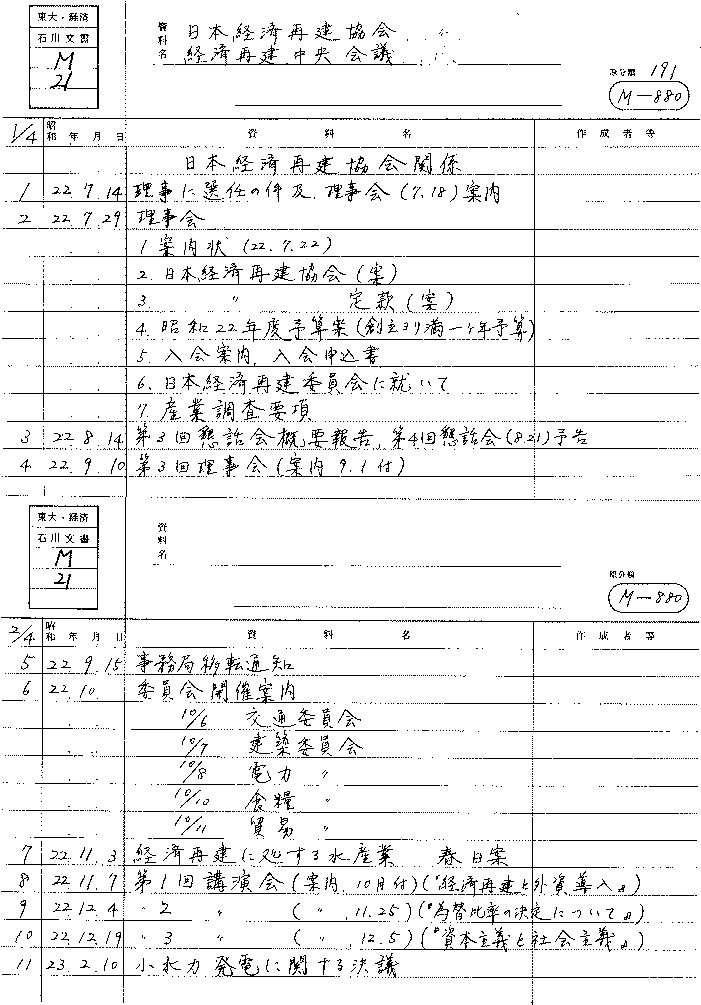 東大・経済
石川文書
M
21
資料名
日本経済再建協会
経済再建中央会議
原分類 191
M-880
1/4 昭和 年 月 日 資料名 作成者等
日本経済再建協会関係
1 22 7 14 理事に選任の件及理事会(7.18)案内
2 22 7 29 理事会
1 案内状 (22.7.22)
2. 日本経済再建協会(案)
3. 〃 定款(案)
4. 昭和22年度予算案(創立ヨリ満一ヶ年予算)
5 入会案内, 入会申込書
6. 日本経済再建委員会に就いて
7. 産業調査要項
3 22 8 14 第3回懇話会概要報告, 第4回懇話会(8.21)予告
4 22. 9. 10 第3回理事会(案内 9.1付)
東大・経済
石川文書
M
21
資料名
原分類
M-880
2/4 昭和 年 月 日 資料名 作成者等
5 22 9 15 事務局移転通知
6 22 10 委員会開催案内
10/6 交通委員会
10/7 建築委員会
10/8 電力 〃
10/10 食糧 〃
10/11 貿易 〃
7 22 11 3 経済再建に処する水産業 春日案
8 22 11 7 第1回講演会(案内, 10月付)(『経済再建と外資導入』)
9 22 12 4 〃 2 〃 ( 〃 , 11.25)(『為替比率の決定について』)
10 22 12 19 〃 3 〃 ( 〃 , 12.5)(『資本主義と社会主義』)
11 23 2 10 小水力発電に関する決議